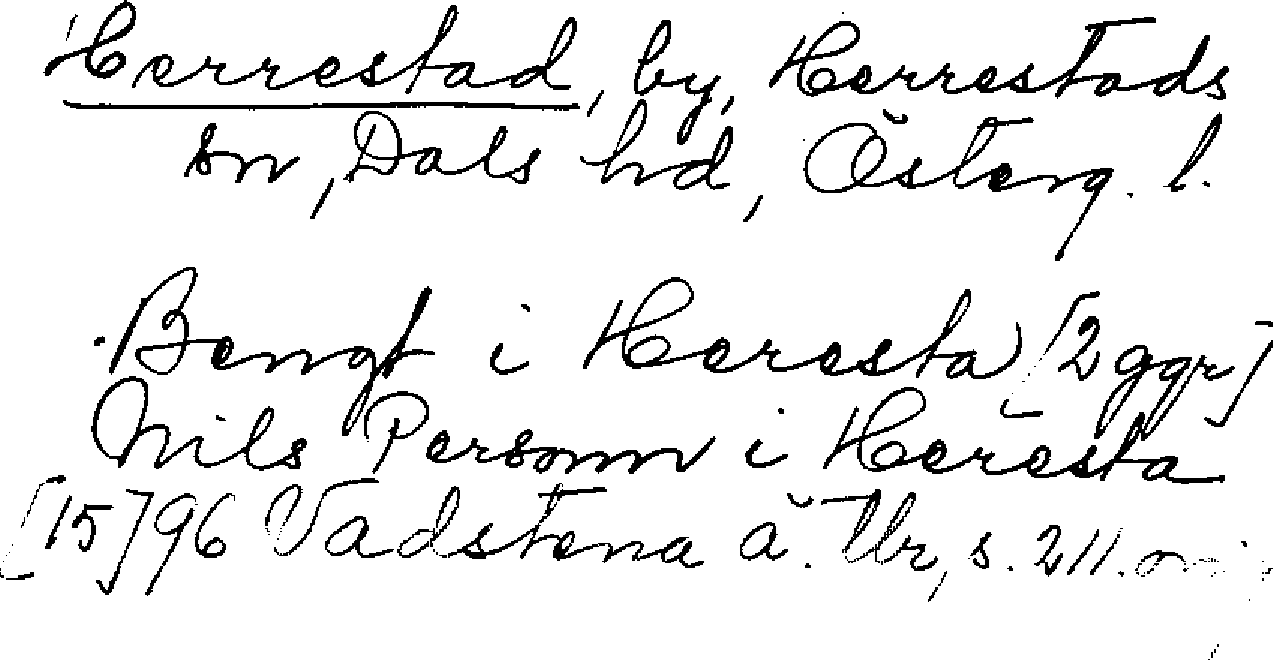 Herrestad, by, Herrestads
sn, Dals hd, Österg. l.
Bengt i Heresta [2 ggr]
Nils Personn i Heresta
[15]96 Vadstena ä. Ur, s. 211.